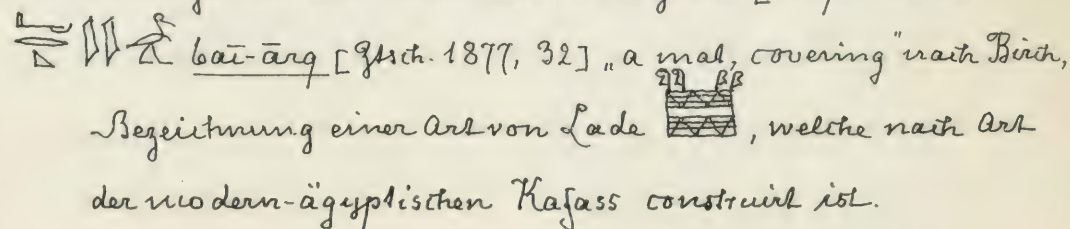 baī-ārq [Ztsch. 1877, 32] „a mat, covering" nach Birch,
Bezeichnung einer Art von Lade , welche nach Art
der modern-ägyptischen Kafass construirt ist.